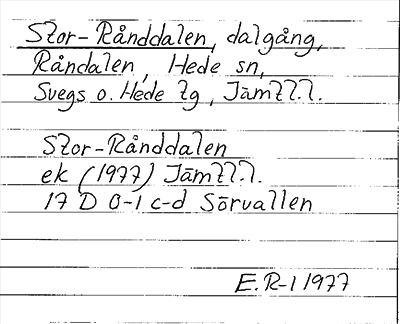 Stor-Rånddalen, dalgång,
Råndalen, Hede sn,
Svegs o. Hede tg, Jämtl.l.
Stor-Rånddalen
ek (1977) Jämtl.l.
17 D 0-1 c-d Sörvallen
E.R-1 1977